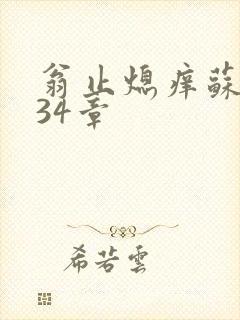 翁止熄痒蘇
34章
希若雲